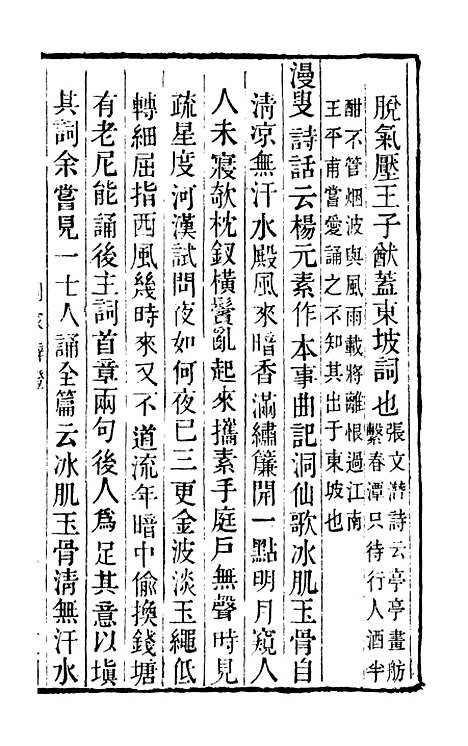 脫氣壓王子猷蓋東坡詞也張文潛詩云亭亭畫舫
繫春潭只待行人酒半
酣不管烟波與風雨載將離恨過江南
王平甫嘗愛誦之不知其出于東坡也
漫叟詩話云楊元素作本事曲記洞仙歌冰肌玉骨自
淸涼無汗水殿風來暗香滿繡簾開一點明月窺人
人未寢欹枕釵橫鬢亂起來攜素手庭戶無聲時見
疏星度河漢試問夜如何夜已三更金波淡玉繩低
轉細屈指西風幾時來又不道流年暗中偷換錢塘
有老尼能誦後主詞首章兩句後人爲足其意以塡
其詞余嘗見一士人誦全篇云冰肌玉骨淸無汗水